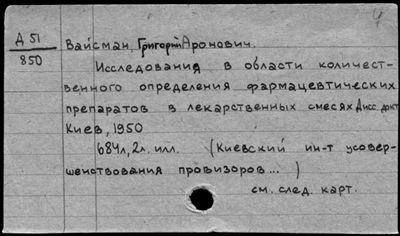 Д 51
850
Вайсман, Григорий Аронович.
Исследования в области количест-
венного определения фармацевтических
препаратов в лекарственных смесях Дисс. докт
Киев, 1950
684л, 2л. илл. (Киевский ин-т усовер-
шенствования провизоров... )
см. след. карт.